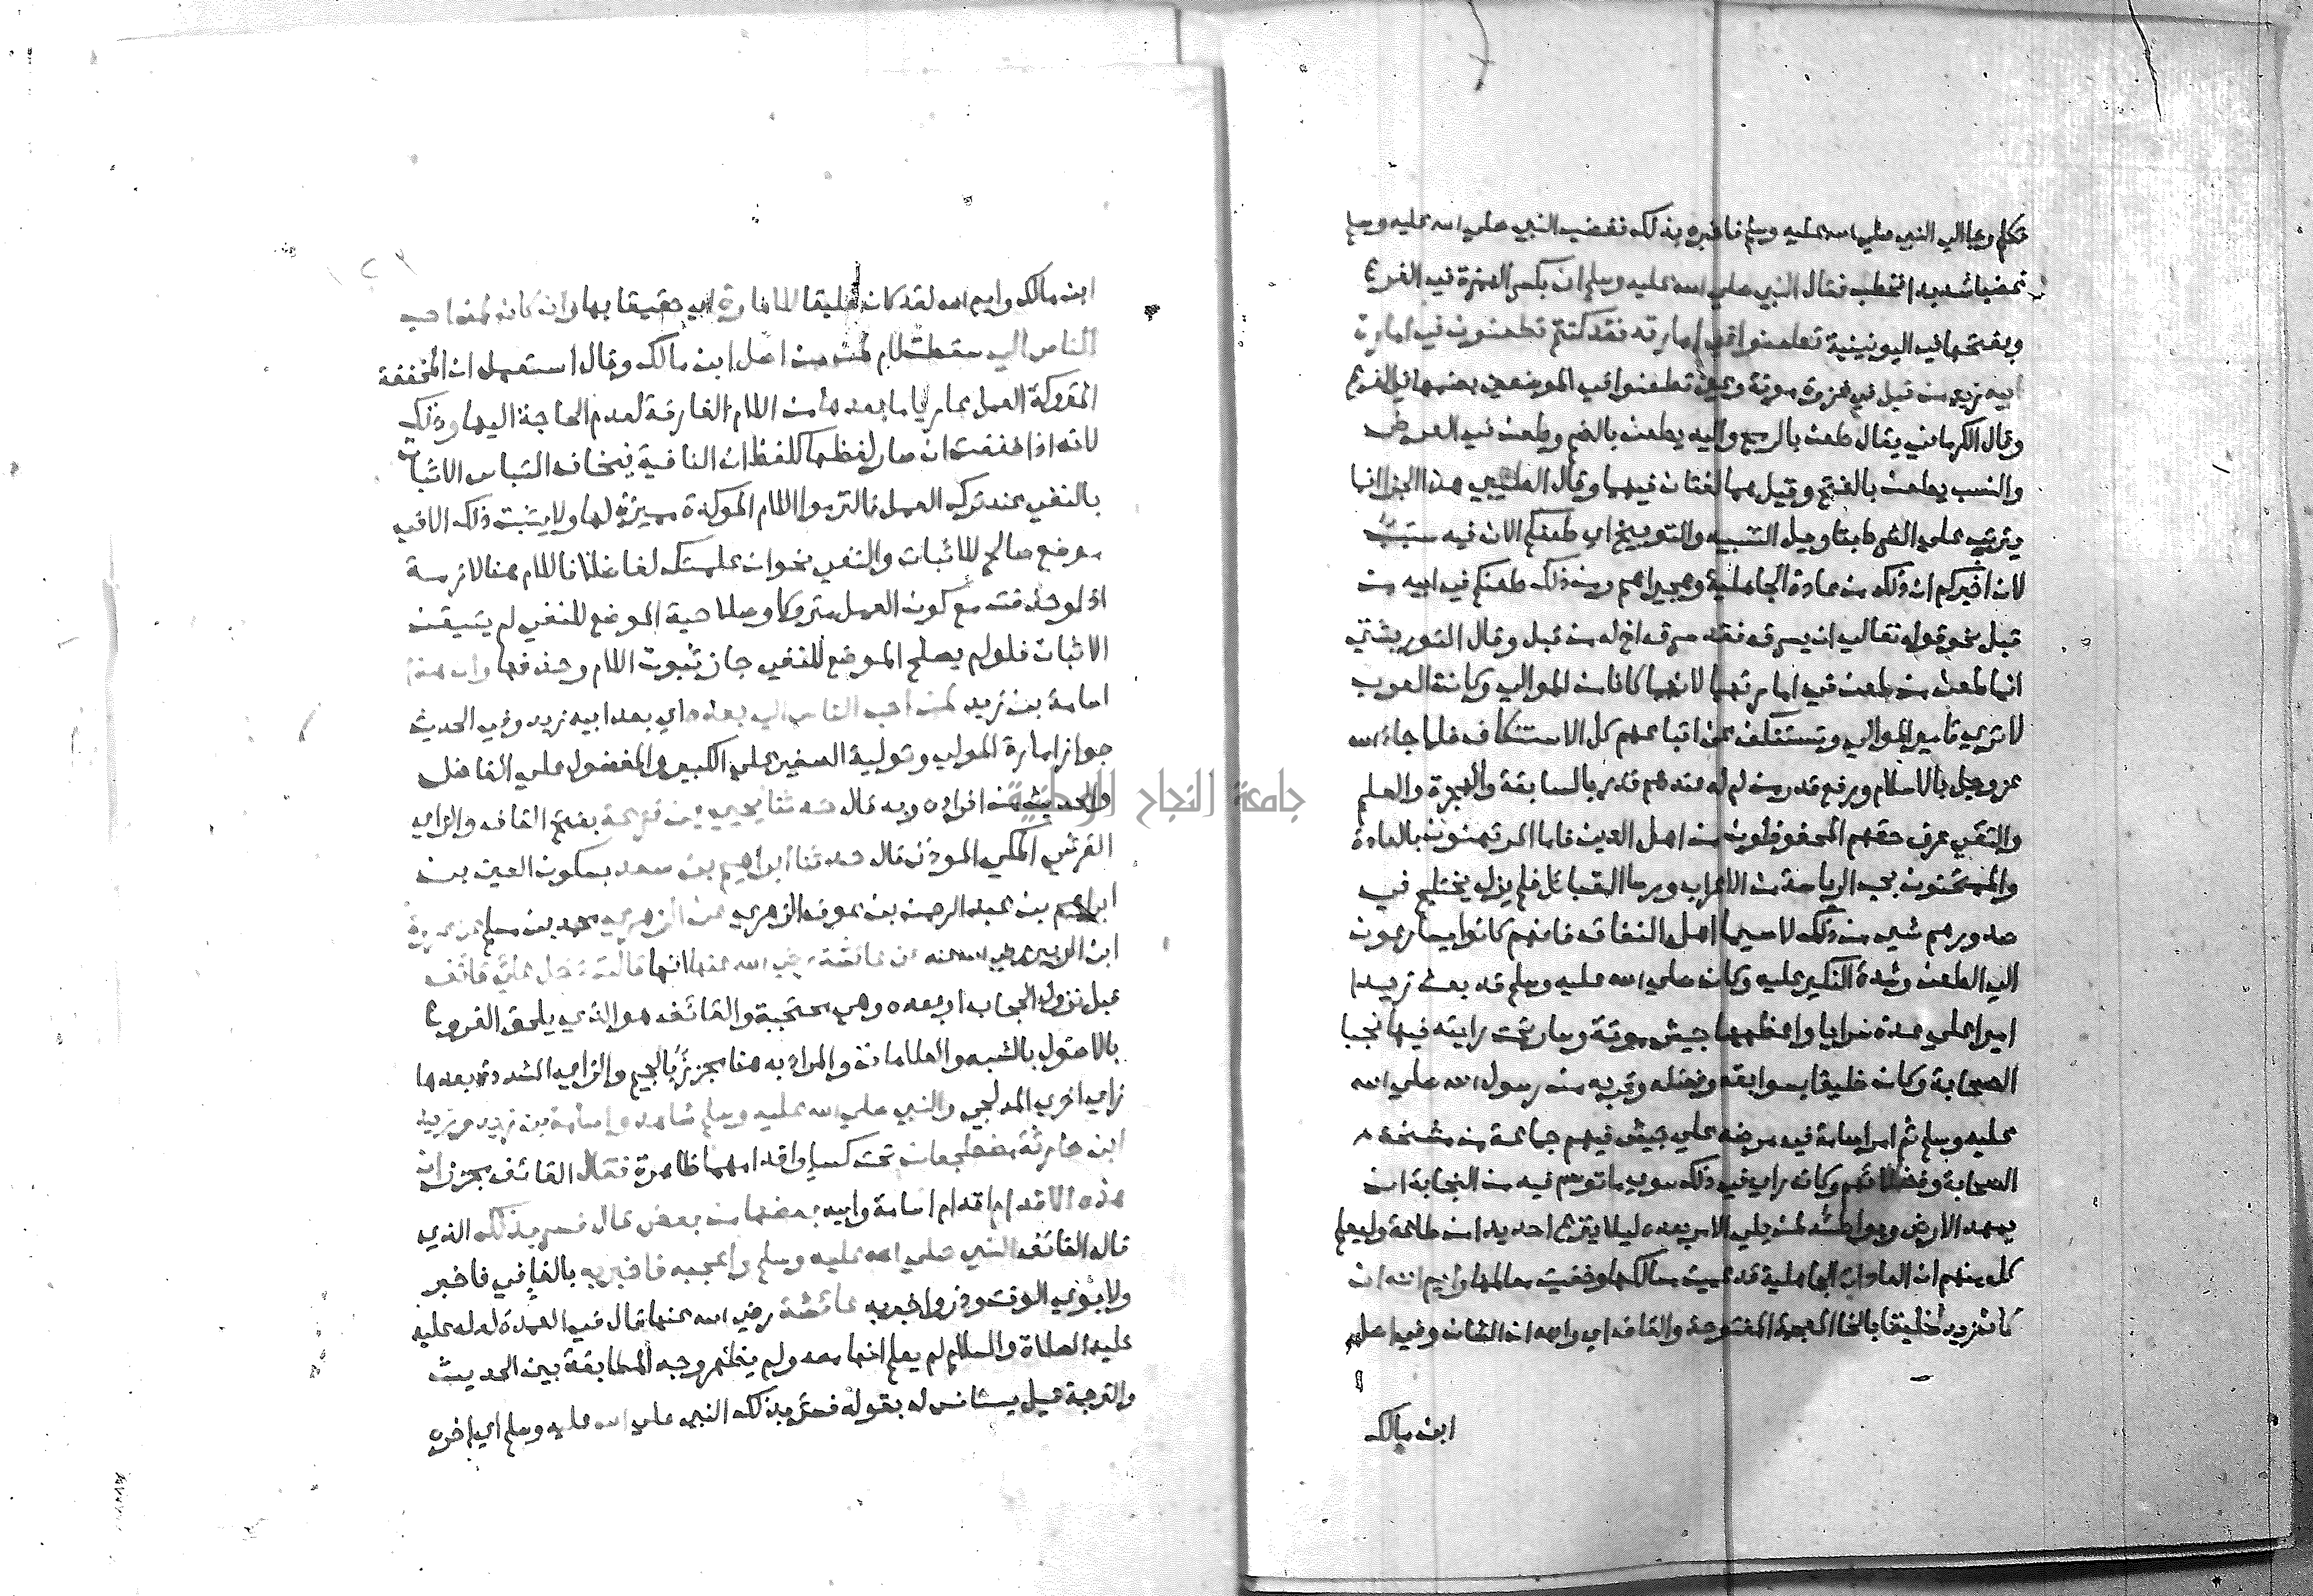 تكلم وجا الي النبي صلي الله عليه وسلم فاخبره بذلك فغضب النبي صلي الله عليه وسلم
غضبا شديدا فخطب فقال النبي صلي الله عليه وسلم ان بكسر الهمزة في الفرع
وبفتحها في اليونينية تطعنوا في امارته فقد كنتم تطعنون في امارة
ابيه زيد من قبل في غزوة موتة وعين تطعنوا في الموضعين بضمها في الفرع
وقال الكرماني يقال طعن بالرمح واليد يطعن بالضم وطعن في العرض
والنسب يطعن بالفتح وقيل هما لغتان فيهما وقال الطيبي هذا الجزا انما
يترتب علي الشرط بتاويل التنبيه والتوبيخ اي طعنكم الان فيه سبب
لان اخبركم ان ذلك من عادة الجاهلية وهجيراهم ومن ذلك طعنكم في ابيه من
قبل نحو قوله تعالي ان يسرق فقد سرق اخ له من قبل وقال التوربشتي
انما طعن من طعن في امارتهما لانهما كانا من الموالي وكانت العرب
لا تري تامير الموالي وتستنكف عن اتباعهم كل الاستنكاف فلما جا الله
عز وجل بالاسلام ورفع قدر من لم له عندهم قدر بالسابقة والهجرة والعلم
والتقي عرف حقهم المحفوظون من اهل الدين فاما المرتهنون بالعادة
والممتحنون بحب الرياسة من الاعراب وروسا القبائل فلم يزل يختلج في
صدورهم شي من ذلك لا سيما اهل النفاق فانهم كانوا يسارعون
الي الطعن وشدة النكير عليه وكان صلي الله عليه وسلم قد بعث زيدا
اميرا علي عدة سرايا واعظمها جيش موتة وسار تحت رايته فيها نجبا
الصحابة وكان خليقا بسوابقه وفضله وقربه من رسول الله صلي الله
عليه وسلم ثم امر اسامة في مرضه علي جيش فيهم جماعة من مشيخة
الصحابة وفضلائهم وكانه راي في ذلك سوي ما توسم فيه من النجابة ان
يمهد الارض ويوطئه لمن يلي الامر بعده ليلا ينزع احد يدا من طاعة وليعلم
كل منهم ان العادات الجاهلية قد عميت مسالكها وخفيت معالمها وايم الله ان
كان زيد لخليقا بالخا المعجمة المفتوحة والقاف اي وانه ان الشان وفي اصل
ابن مالك
ابن مالك وايم الله لقد كان خليقا للامارة اي حقيقا بها وان كان لمن احب
الناس الي سقطت لام لمن من اصل ابن مالك وقال استعمل ان المخففة
المتروكة العمل عاريا ما بعدها من اللام الفارقة لعدم الحاجة اليها وذلك
لانه اذا خففت ان صار لفظها كلفظ ان النافية فيخاف التباس الاثبات
بالنفي عند ترك العمل فالتزموا اللام الموكدة مميزة لها ولا يثبت ذلك الا في
موضع صالح للاثبات والنفي نحو ان علمتك لفاضلا فاللام هنا لازمة
اذ لو حذفت مع كون العمل متروكا وصلاحية الموضع للنفي لم يتيقن
الاثبات فلو لم يصلح الموضع للنفي جاز ثبوت اللام وحذفها وان هذا
اسامة بن زيد لمن احب الناس الي بعده اي بعد ابيه زيد وفي الحديث
جواز امارة الموالي وتولية الصغير علي الكبير والمفضول علي الفاضل
والحديث من افراده وبه قال حدثنا يحيي بن قزعة بفتح القاف والزاي
القرشي المكي الموذن قال حدثنا ابراهيم بن سعد بسكون العين بن
ابراهيم بن عبد الرحمن بن عوف الزهري عن الزهري محمد بن مسلم عن عروة
ابن الزبير رضي الله عنه عن عائشة رضي الله عنها انها قالت دخل علي قائف
قبل نزول الحجاب او بعده وهي محتجبة والقائف هو الذي يلحق الفروع
بالاصول بالشبه والعلامات والمراد به هنا مجزز بالجيم والزاي المشددة بعدها
زاي اخري المدلجي والنبي صلي الله عليه وسلم شاهد واسامة بن زيد وزيد
ابن حارثة مضطجعان تحت كسا واقدامهما ظاهرة فقال القائف مجزز ان
هذه الاقدام اقدام اسامة وابيه بعضها من بعض قال فسر بذلك الذي
قاله القائف النبي صلي الله عليه وسلم واعجبه فاخبر به بالفا في فاخبر
ولابوي الوقت وذر واخبر به عائشة رضي الله عنها قال في العمدة لعله عليه
عليه الصلاة والسلام لم يعلم انها معه ولم يظهر وجه المطابقة بين الحديث
والترجمة قيل يستانس له بقوله فسر بذلك النبي صلي الله عليه وسلم اي الخ
جامعة النجاح الوطنية